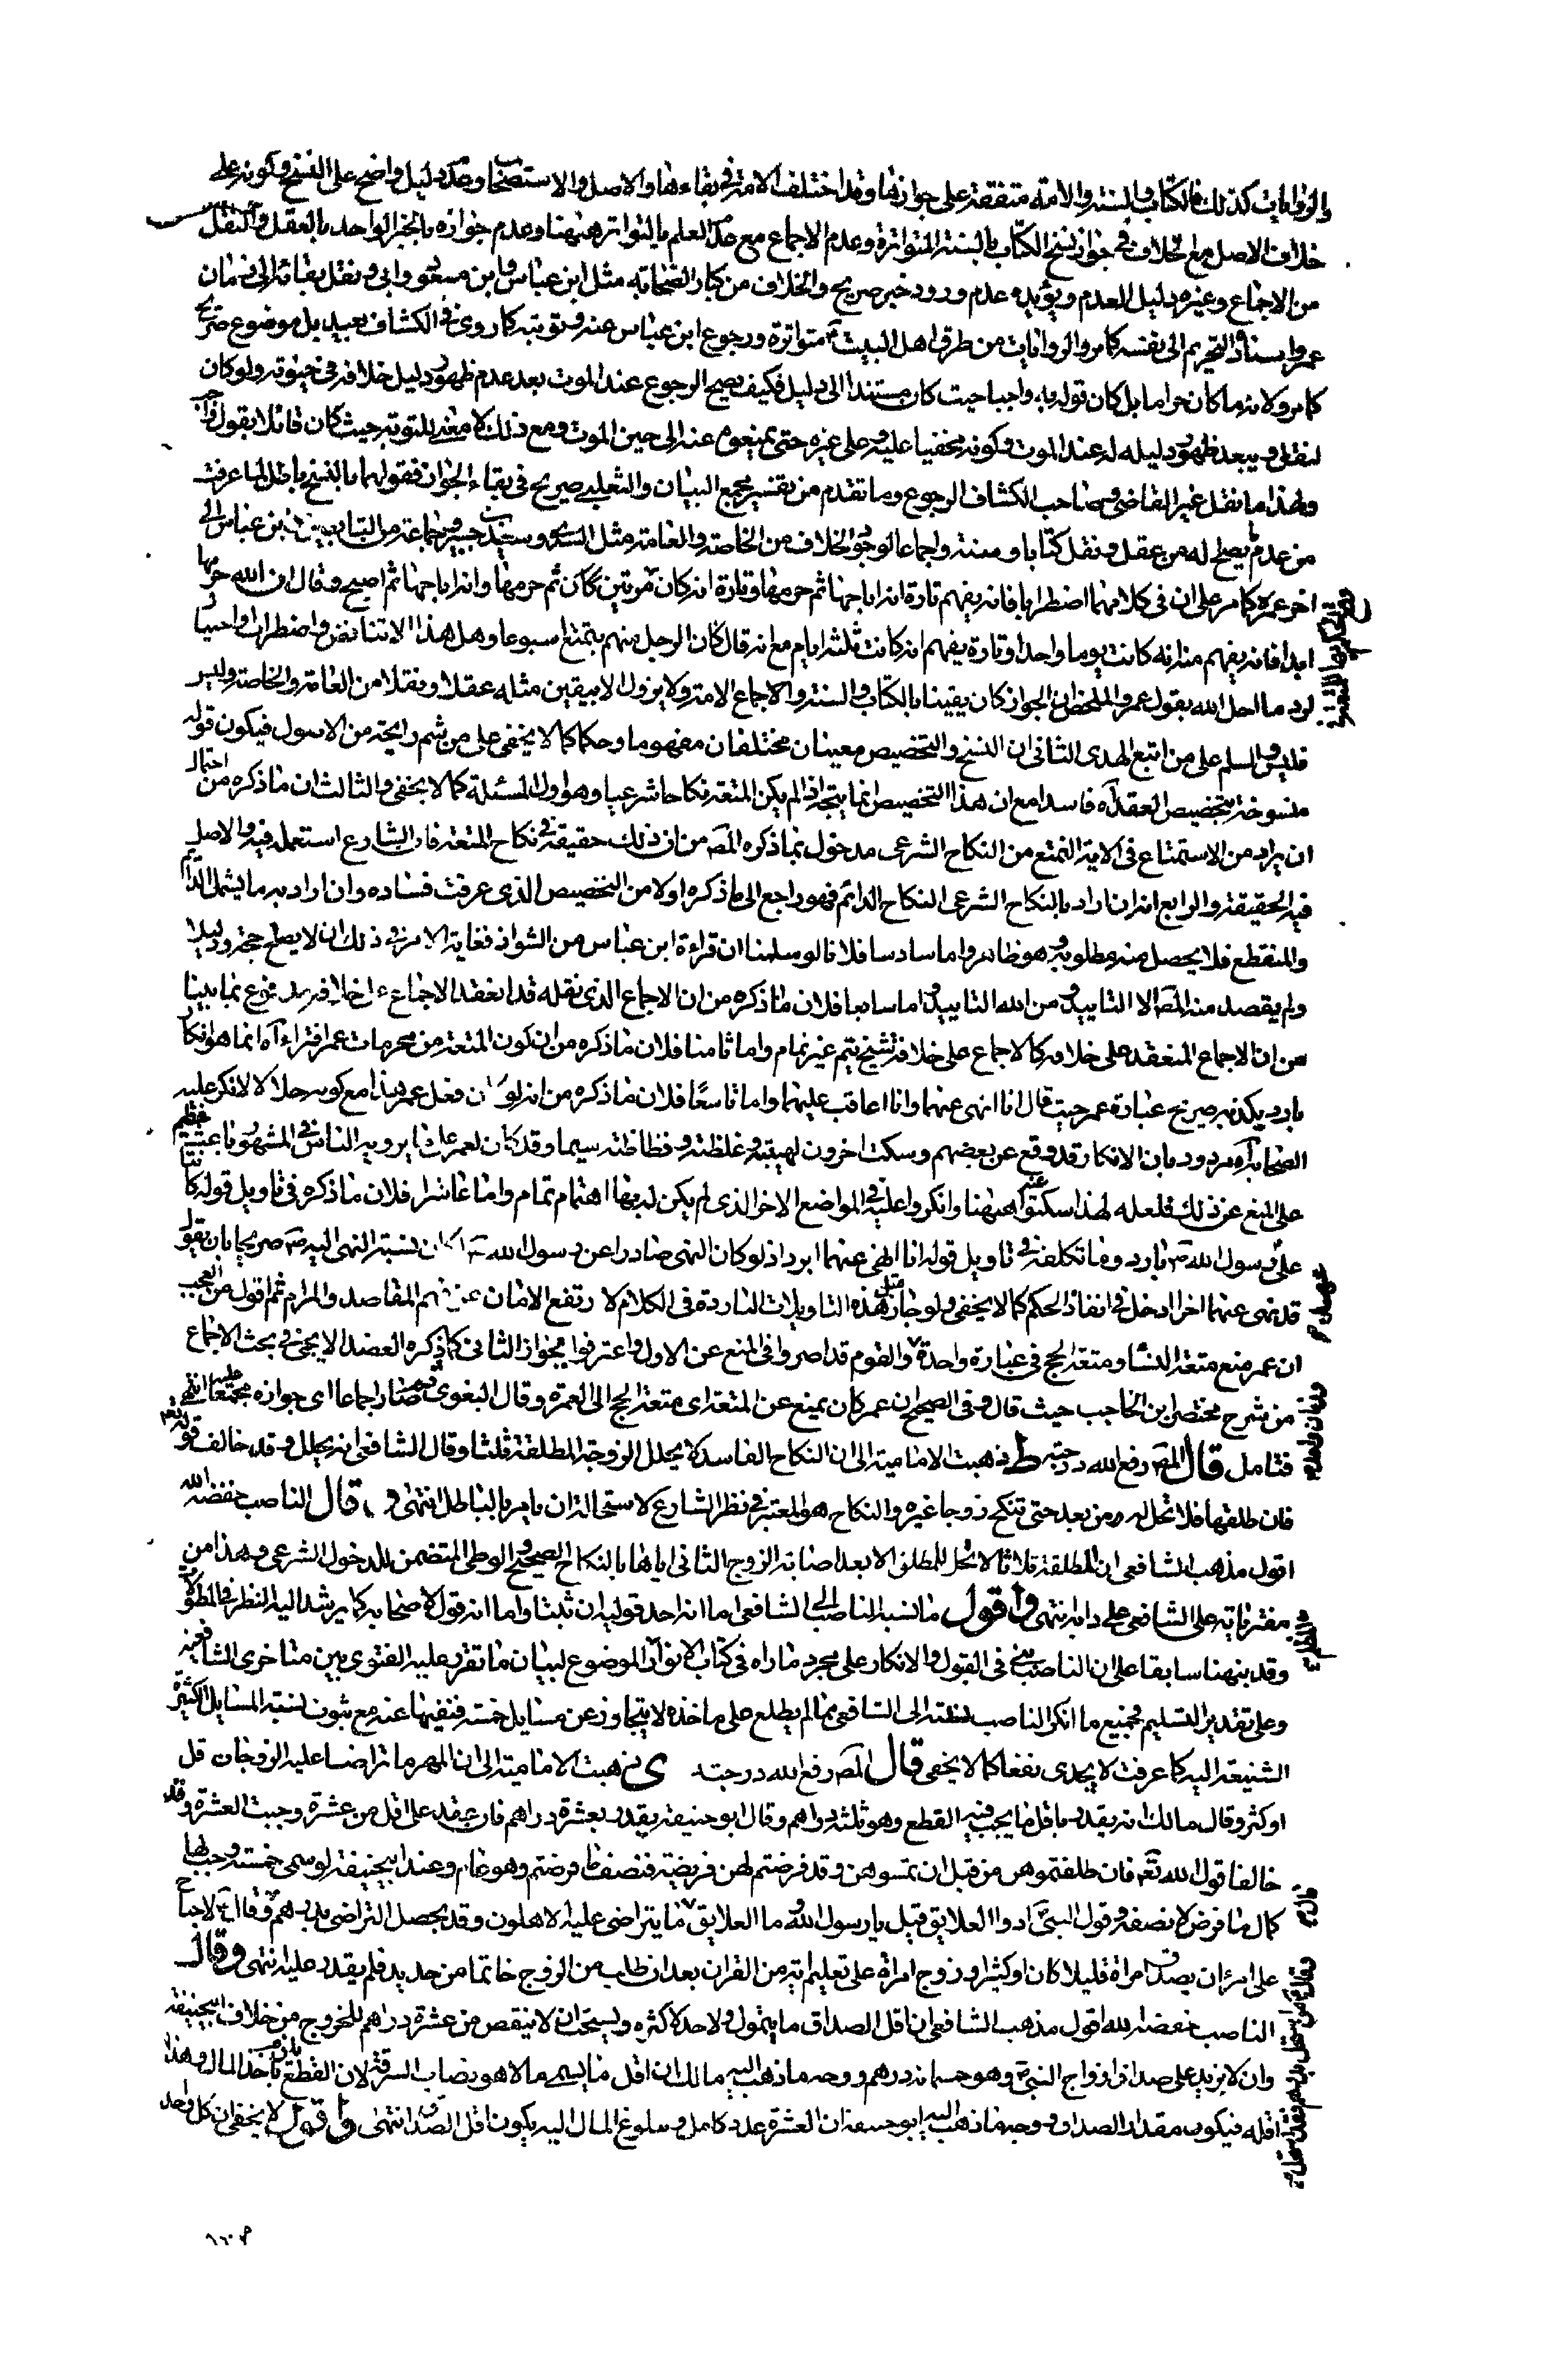 والروايات كذلك فالكتاب والسنة والامة متفقة على جوازها وقد اختلف الامة في بقاءها والاصل والاستصحاب وعدم دليل واضح على النسخ وكونه على
خلاف الاصل مع الخلاف في جواز نسخ الكتاب بالسنة المتواترة وعدم الاجماع مع عدم العلم بالتواتر هيهنا وعدم جوازه بالخبر الواحد بالعقل والنقل
من الاجماع وغيره دليل العدم ويؤيده عدم ورود خبر صريح والخلاف من كبار الصحابة مثل ابن عباس وابن مسعود وابي ونقل بقائه الى زمان
عمر واسناد التحريم الى نفسه كما مر والروايات من طرق اهل البيت متواترة ورجوع ابن عباس عنه وتوبته كما روى في الكشاف بعيد بل موضوع صريح
كما مر ولانه ما كان حراما بل كان قوله به واجبا حيث كان مستندا الى دليل فكيف يصح الرجوع عند الموت بعد عدم ظهور دليل خلافه في حيوته ولو كان
لنقل ويبعد ظهور دليله له عند الموت وكونه مخفيا عليه وعلى غيره حتى يمنعوه عنه الى حين الموت ومع ذلك لا معنى للتوبة حيث كان قائلا بقول
ولهذا ما نقل غير القاضي وصاحب الكشاف الرجوع وما تقدم من تفسير مجمع البيان والثعلبي صريح في بقاء الجواز فقولهما بالنسخ باطل لما عرفت
من عدم ما يصلح له من عقل ونقل كتابا وسنة واجماعا لوجود الخلاف من الخاصة والعامة مثل السدي وسعيد بن جبير وجماعة من التابعين وابن عباس الى
اخر عمره كما مر على ان في كلامهما اضطرابا فانه يفهم تارة انه اباحها ثم حرمها وتارة انه كان مرتين كان ثم حرمها وانه اباحها ثم اصبح وقال ان الله حرمها
ابدا فانه يفهم منه انه كانت يوما واحدا وتارة يفهم انه كانت ثلثة ايام مع انه قال كان الرجل منهم يتمتع اسبوعا وهل هذا الا تناقض واضطراب واحتيال
لرد ما احل الله بقول عمر والملخص ان الجواز كان يقينا بالكتاب والسنة والاجماع الامة ولا يزول الا بيقين مثله عقلا ونقلا من العامة والخاصة وليس
فليس والسلم على من اتبع الهدى الثاني ان النسخ والتخصيص معنيان مختلفان مفهوما وحكما كما لا يخفى على من شم رايحة من الاصول فيكون قوله
منسوخة بتخصيص العقد آه فاسدا مع ان هذا التخصيص انما يتجه اذا لم يكن المتعة نكاحا شرعيا وهو اول المسئلة كما لا يخفى والثالث ان ما ذكره من احتمال
ان يراد من الاستمتاع في الاية التمتع من النكاح الشرعي مدخول بما ذكره المص من ان ذلك حقيقة في نكاح المتعة فان الشارع استعمله فيه والاصل
فيه الحقيقة والرابع انه ان اراد بالنكاح الشرعي النكاح الدائم فهو راجع الى ما ذكره اولا من التخصيص الذي عرفت فساده وان اراد به ما يشمل الدائم
والمنقطع فلا يحصل منه مطلوبه وهو ظاهر واما سادسا فلانا لو سلمنا ان قراءة ابن عباس من الشواذ فغاية الامر في ذلك ان لا يصلح حجة ودليلا
ولم يقصد منه المص الا التاييد ومن الله التاييد واما سابعا فلان ما ذكره من ان الاجماع الذي نقله قد انعقد الاجماع على خلافه مدفوع بما بينا
من ان الاجماع المنعقد على خلافه كالاجماع على خلافة شيخ تيم غير تمام واما ثامنا فلان ما ذكره من ان كون المتعة من محرمات عمر افتراء آه انما هو انكار
بارد يكذبه صريح عبارة عمر حيث قال انا انهى عنهما وانا اعاقب عليهما واما تاسعا فلان ما ذكره من انه لو كان فعل عمر هذا مع كونه حلالا لانكر عليه
الصحابة آه مردود بان الانكار قد وقع عن بعضهم وسكت اخرون لهيبته وغلظته وفظاظته سيما وقد كان لعمر على ما يرويه الناس في المشهور باعثية
على المنع عن ذلك فلعله لهذا سكتوا عنه هيهنا وانكروا عليه في المواضع الاخر الذي لم يكن له بها اهتمام تمام واما عاشرا فلان ما ذكره في تاويل قوله كانتا
على عهد رسول الله ص بارد وما تكلفه في تاويل قوله انا انهى عنهما ابرد اذ لو كان النهي صادرا عن رسول الله ص لكان نسبة النهي اليه ص صريحا بان يقول
قد نهى عنهما اخرا ادخل في انفاذ الحكم كما لا يخفى ولو جاز مثل هذه التاويلات الباردة في الكلام لارتفع الامان عن فهم المقاصد والمرام ثم اقول من العجب
ان عمر منع متعة النساء ومتعة الحج في عبارة واحدة والقوم قد اصروا في المنع عن الاول واعترفوا بجواز الثاني كما ذكره العضد الايجي في بحث الاجماع
من شرح مختصر ابن الحاجب حيث قال وفي الصحيح ان عمر كان يمنع عن المتعة اي متعة الحج الى العمرة وقال البغوي ثم صار اجماعا اي جوازه مجتمعا عليه انتهى
فتامل قال المص رفع الله درجته ط ذهبت الامامية الى ان النكاح الفاسد لا يحلل الزوجة المطلقة ثلثا وقال الشافعي انه يحلل وقد خالف قوله تعالى
فان طلقها فلا تحل له من بعد حتى تنكح زوجا غيره والنكاح هو المعتبر في نظر الشارع لاستحالة ان يامر بالباطل انتهى و قال الناصب خفضه الله
اقول مذهب الشافعي ان المطلقة ثلاثا لا تحل للمطلق الا بعد اصابة الزوج الثاني اياها بالنكاح الصحيح والوطي المتضمن للدخول الشرعي وهذا من
مفترياته على الشافعي على دابه انتهى واقول ما نسبه الناصب الى الشافعي اما انه احد قوليه ان ثبتا واما انه قول لاصحابه كما يرشد اليه النظر في المطولات
وقد نبهنا سابقا على ان الناصب بنى في القول والانكار على مجرد ما راه في كتاب الانوار الموضوع لبيان ما تقرر عليه الفتوى بين متاخري الشافعية
وعلى تقدير التسليم فجميع ما انكر الناصب نسبته الى الشافعي مما لم يطلع على ماخذه لا يتجاوز عن مسايل خمسة فنفيها عنه مع ثبوت نسبة المسايل الكثيرة
الشنيعة اليه كما عرفت لا يجدي نفعا كما لا يخفى قال المص رفع الله درجته ى ذهبت الامامية الى ان المهر ما تراضيا عليه الزوجان قل
او كثر وقال مالك انه يقدر باقل ما يجب فيه القطع وهو ثلثة دراهم وقال ابو حنيفة يقدر بعشرة دراهم فان عقد على اقل من عشرة وجبت العشرة وقد
خالفا قول الله تعالى فان طلقتموهن من قبل ان تمسوهن وقد فرضتم لهن فريضة فنصف ما فرضتم وهو عام وعند ابي حنيفة لو سمى خمسة وجب لها
كمال ما فرض لا نصفه وقول النبي ادوا العلايق قيل يا رسول الله وما العلايق ما يتراضى عليه الاهلون وقد يحصل التراضي بدرهم وقال لا جناح
على امرئ ان يصدق امراة قليلا كان او كثيرا وزوج امراة على تعليم اية من القران بعد ان طلب من الزوج خاتما من حديد فلم يقدر عليه انتهى وقال
الناصب خفضه الله اقول مذهب الشافعي ان اقل الصداق ما يتمول ولا حد لاكثره ويستحب ان لا ينقص من عشرة دراهم للخروج من خلاف ابي حنيفة
وان لا يزيد على صداق ازواج النبي وهو خمسمائة درهم ووجه ما ذهب اليه مالك ان اقل ما يسمى مالا هو نصاب السرقة لان القطع باخذ المال وهذا
اقله فيكون مقدار الصداق ووجه ما ذهب اليه ابو حنيفة ان العشرة عدد كامل وبلوغ المال اليه يكون اقل الصداق انتهى واقول لا يخفى ان كل واحد